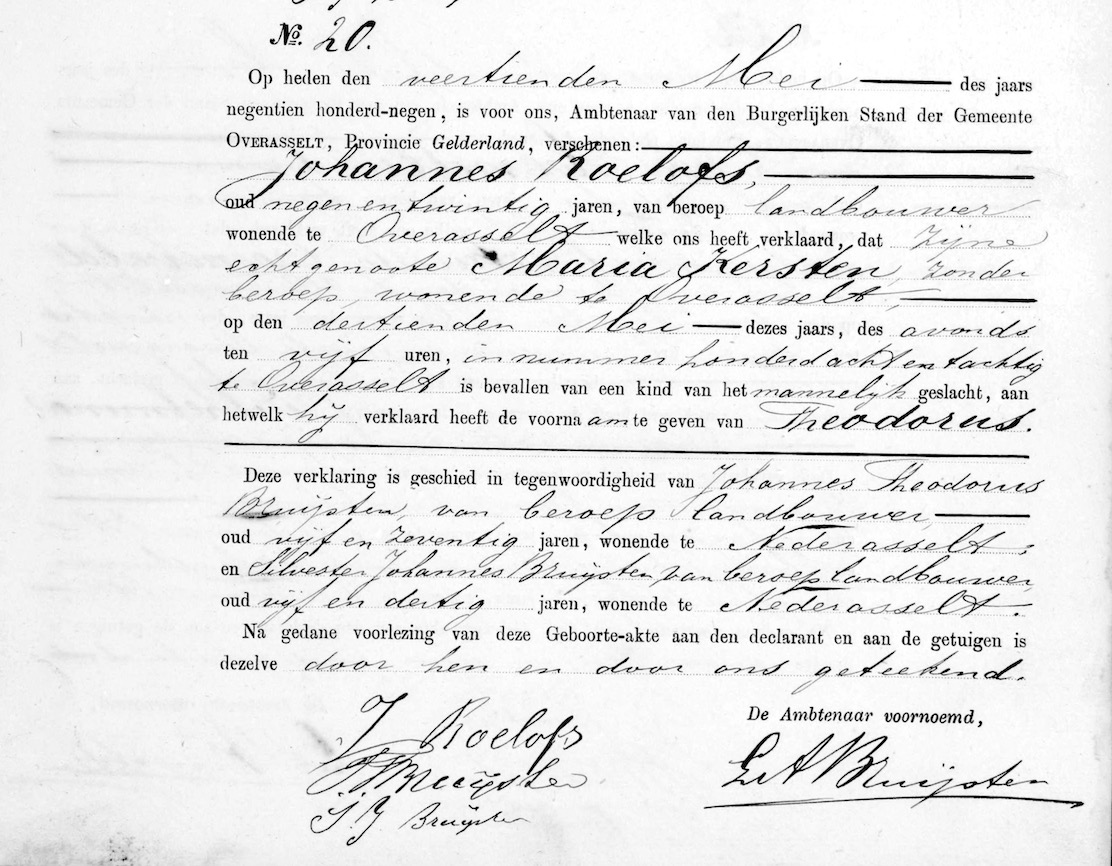 No. 20.
Op heden den veertienden Mei des jaars
negentien honderd-negen, is voor ons, Ambtenaar van den Burgerlijken Stand der Gemeente
OVERASSELT, Provincie Gelderland, verschenen:
Johannes Roelofs,
oud negen en twintig jaren, van beroep landbouwer
wonende te Overasselt welke ons heeft verklaard, dat zijne
echtgenoote Maria Kersten, zonder
beroep, wonende te Overasselt,
op den dertienden Mei dezes jaars, des avonds
ten vijf uren, in nummer honderd acht en tachtig
te Overasselt is bevallen van een kind van het mannelijk geslacht, aan
hetwelk hij verklaard heeft de voornaam te geven van Theodorus.
Deze verklaring is geschied in tegenwoordigheid van Johannes Theodorus
Bruijsten, van beroep landbouwer,
oud vijf en zeventig jaren, wonende te Nederasselt;
en Silvester Johannes Bruijsten van beroep landbouwer,
oud vijf en dertig jaren, wonende te Nederasselt.
Na gedane voorlezing van deze Geboorte-akte aan den declarant en aan de getuigen is
dezelve door hen en door ons geteekend.
De Ambtenaar voornoemd,
J Roelofs
Bruijsten
S. J Bruijsten
Bruijsten